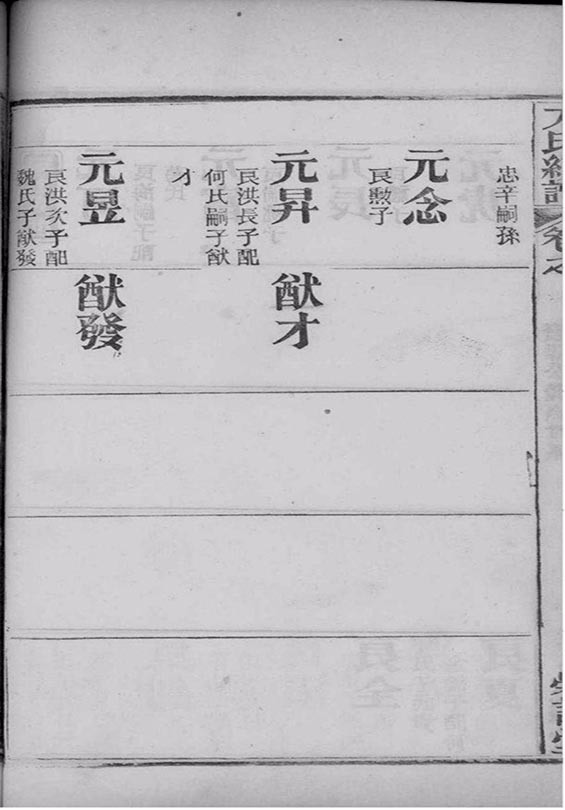 忠辛嗣孫
元念
良勲子
元昇
良洪長子配
何氏嗣子猷
才
元昱
良洪次子配
魏氏子猷發
猷才
猷發